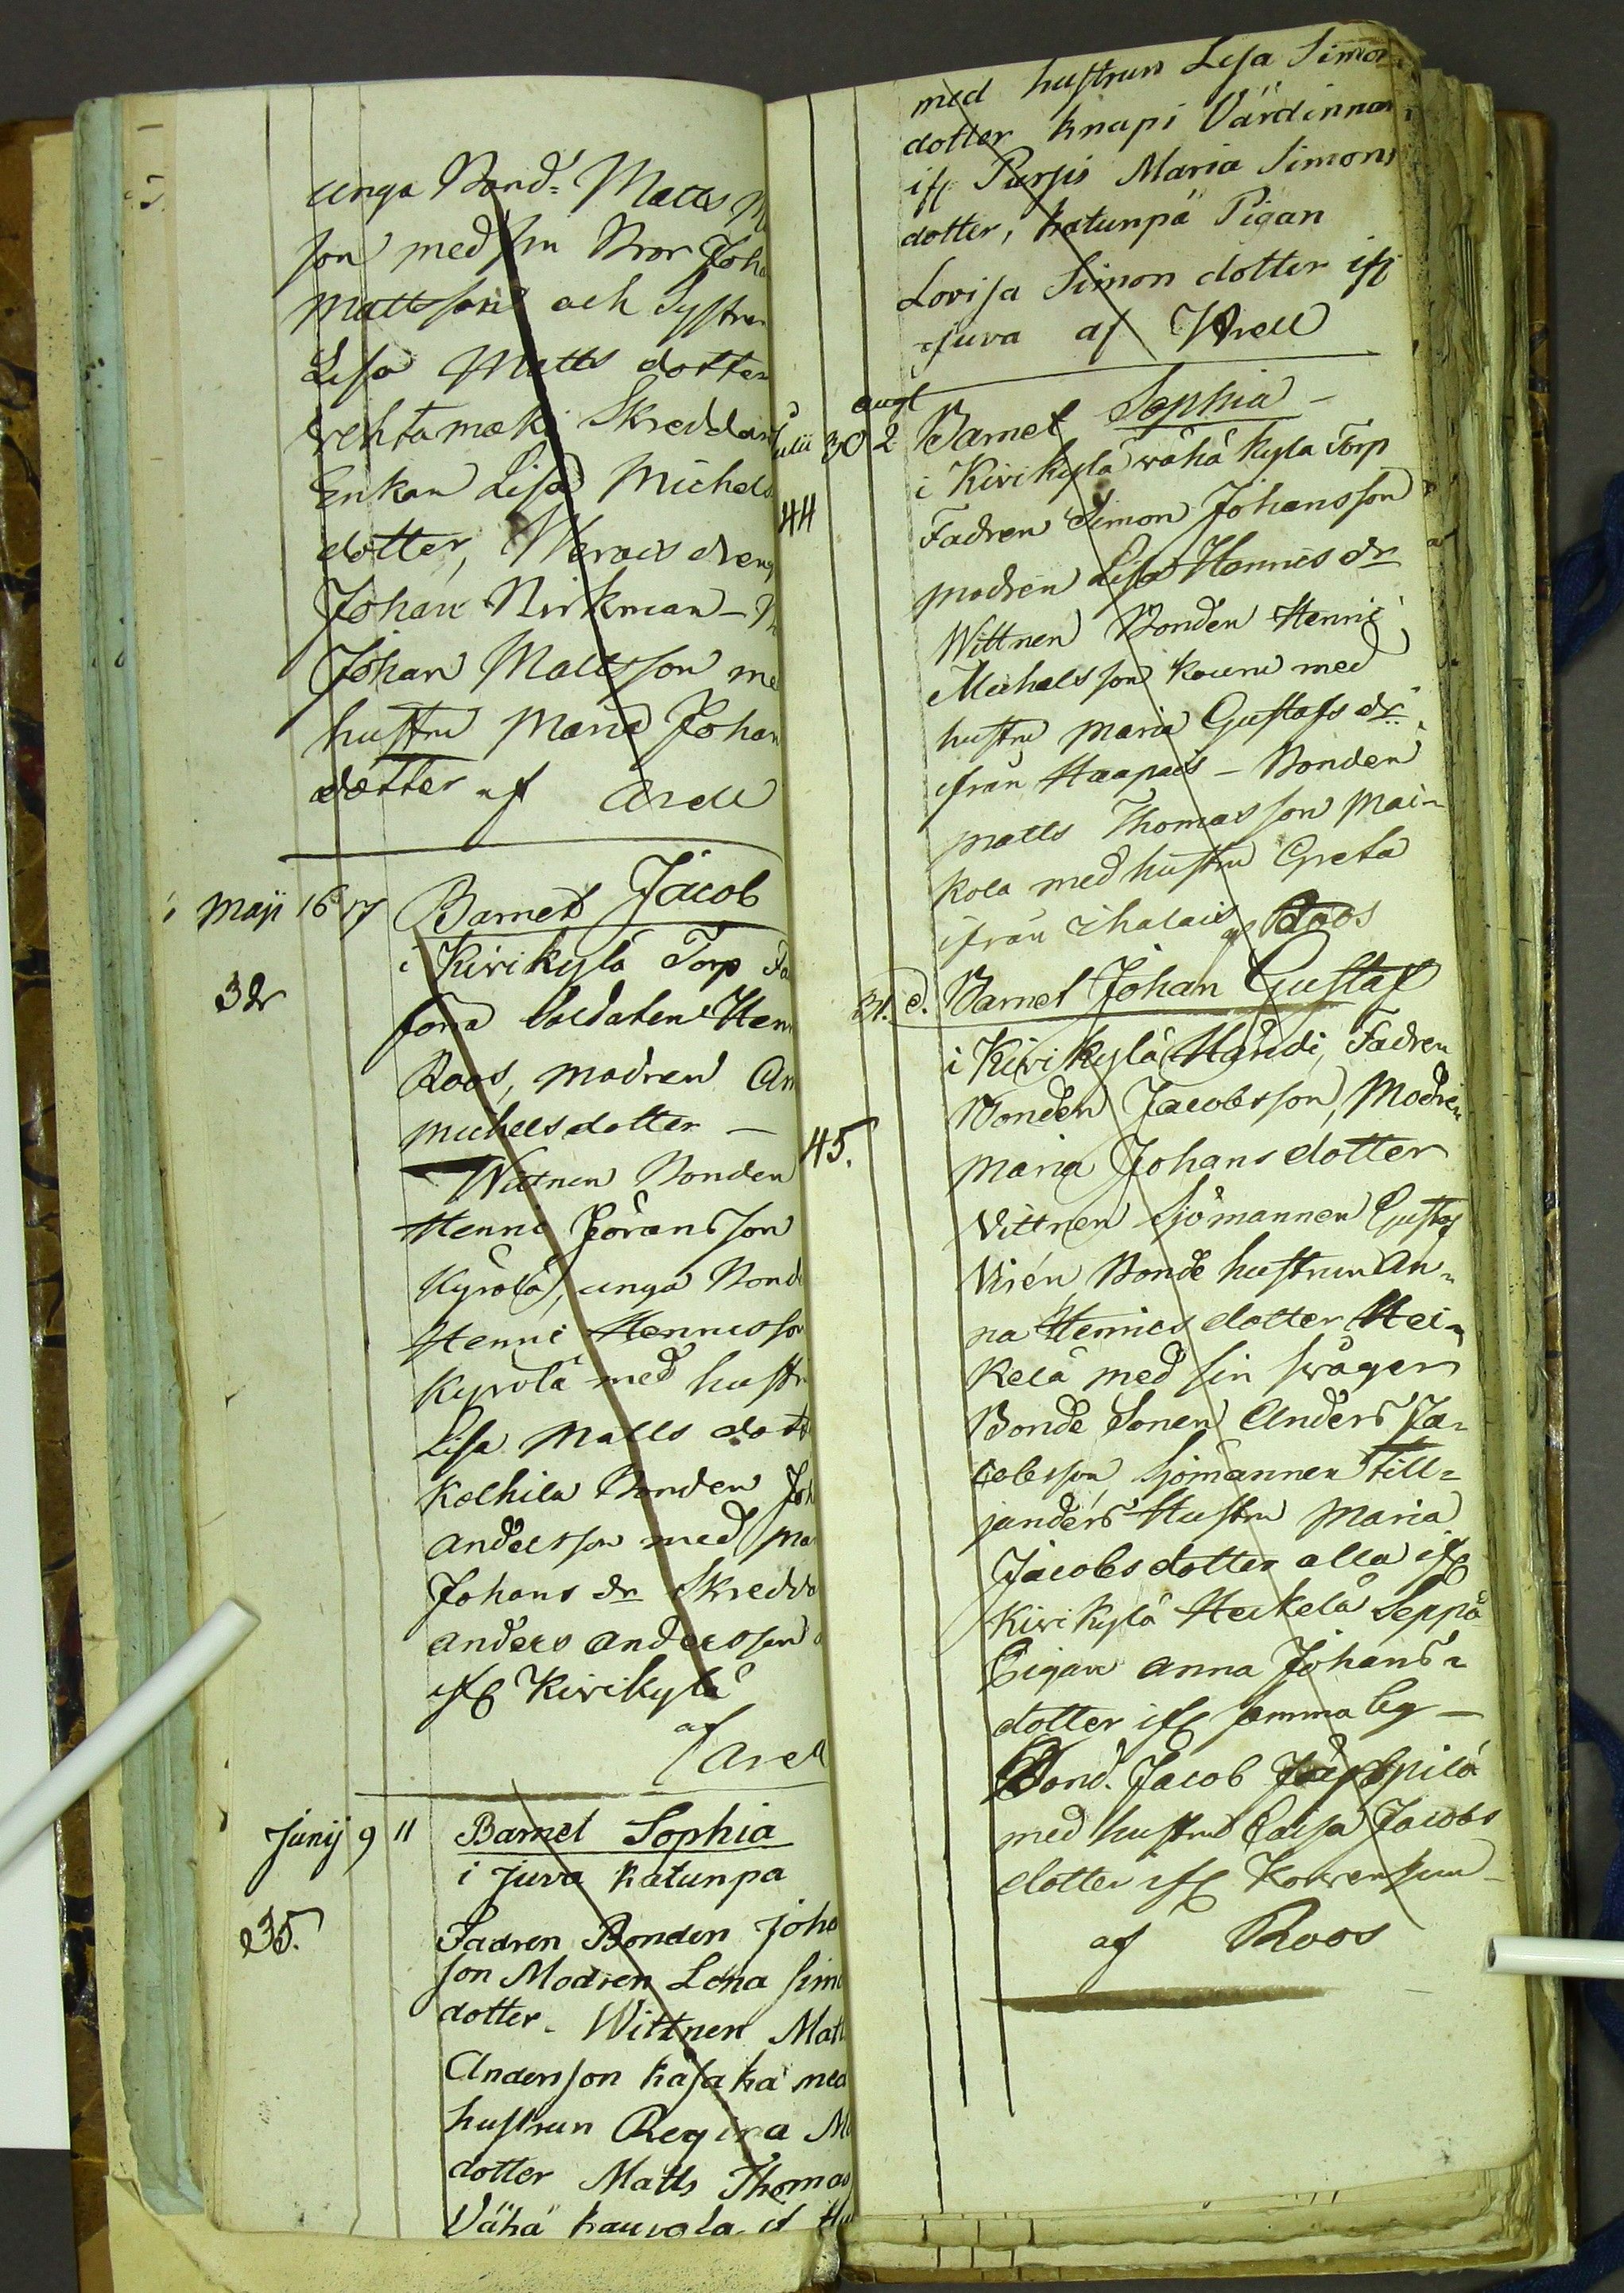 unga Bond. Matts M
son med sin Bror Joha
Mattsson och Systren
Lisa Matts dotter
vehtamäki Skreddar
Enkan Lisa Michels
dotter, dreng
Johan Nirkman - M
Johan Mattsson me
hustru Maria Johan
dotter af Arell
Maji 16 17 Barnet Jacob
i Kirikylä Torp Fa
34
forra Soldaten Hen
Roos, modren An
Michelsdotter -
Wittnen Bonden
Henric Jöransson
Kyrölä, unga Bond
Henric Henricsson
Kyrölä med hustr
Lisa Matts dott
Kolhila Bonden Joh
Andersson med Ma
Johans dr Skredda
Anders Andersson
ifr Kirikylä
af
Arell
Junij 9 11 Barnet Sophia
i Juva katunpä
35. Fadren Bonden Joha
son Modren Lena Simo
dotter. Wittnen Matt
Andersson käsakä med
hustrun Regina M
dotter Matts Thomas
Vähä kauvola if Hu
med hustrun Lisa Simon
dotter knapi Värdinnan
ifr Pursis Maria Simons
dotter, katunpä Pigan
Lovisa Simon dotter ifr
Juva af Arell
augt
Julii 30 2 Barnet Sophia -
i Kirikylä vähäkylä Torp
44
Fadren Simon Johansson
modren Lisa Henrics dr
Wittnen Bonden Henric
Michelsson Kouru med
hustru Maria Gustafs dr
ifrån Haapais - Bonden
Matts Thomasson Mai-
kola med hustru Greta
ifrån ihalais af Roos
31. d. Barnet Johan Gustaf
i Kirikylä Händi, Fadren
Bonden Jacobsson, Modren
45.
Maria Johans dotter
Vittnen Sjömannen Gustaf
Virén, Bonde hustrun An-
na Henrics dotter Hei-
kelä med sin svåger
Bonde Sonen Anders Ja-
cobsson, Sjömannen Till-
janders Hustru Maria
Jacobs dotter alla ifr
Kirikylä Heikelä Seppä
Pigan Anna Johans-
dotter ifr samma by -
Bond. Jacob
med hustru Caisa Jacobs
dotter ifr
af Roos